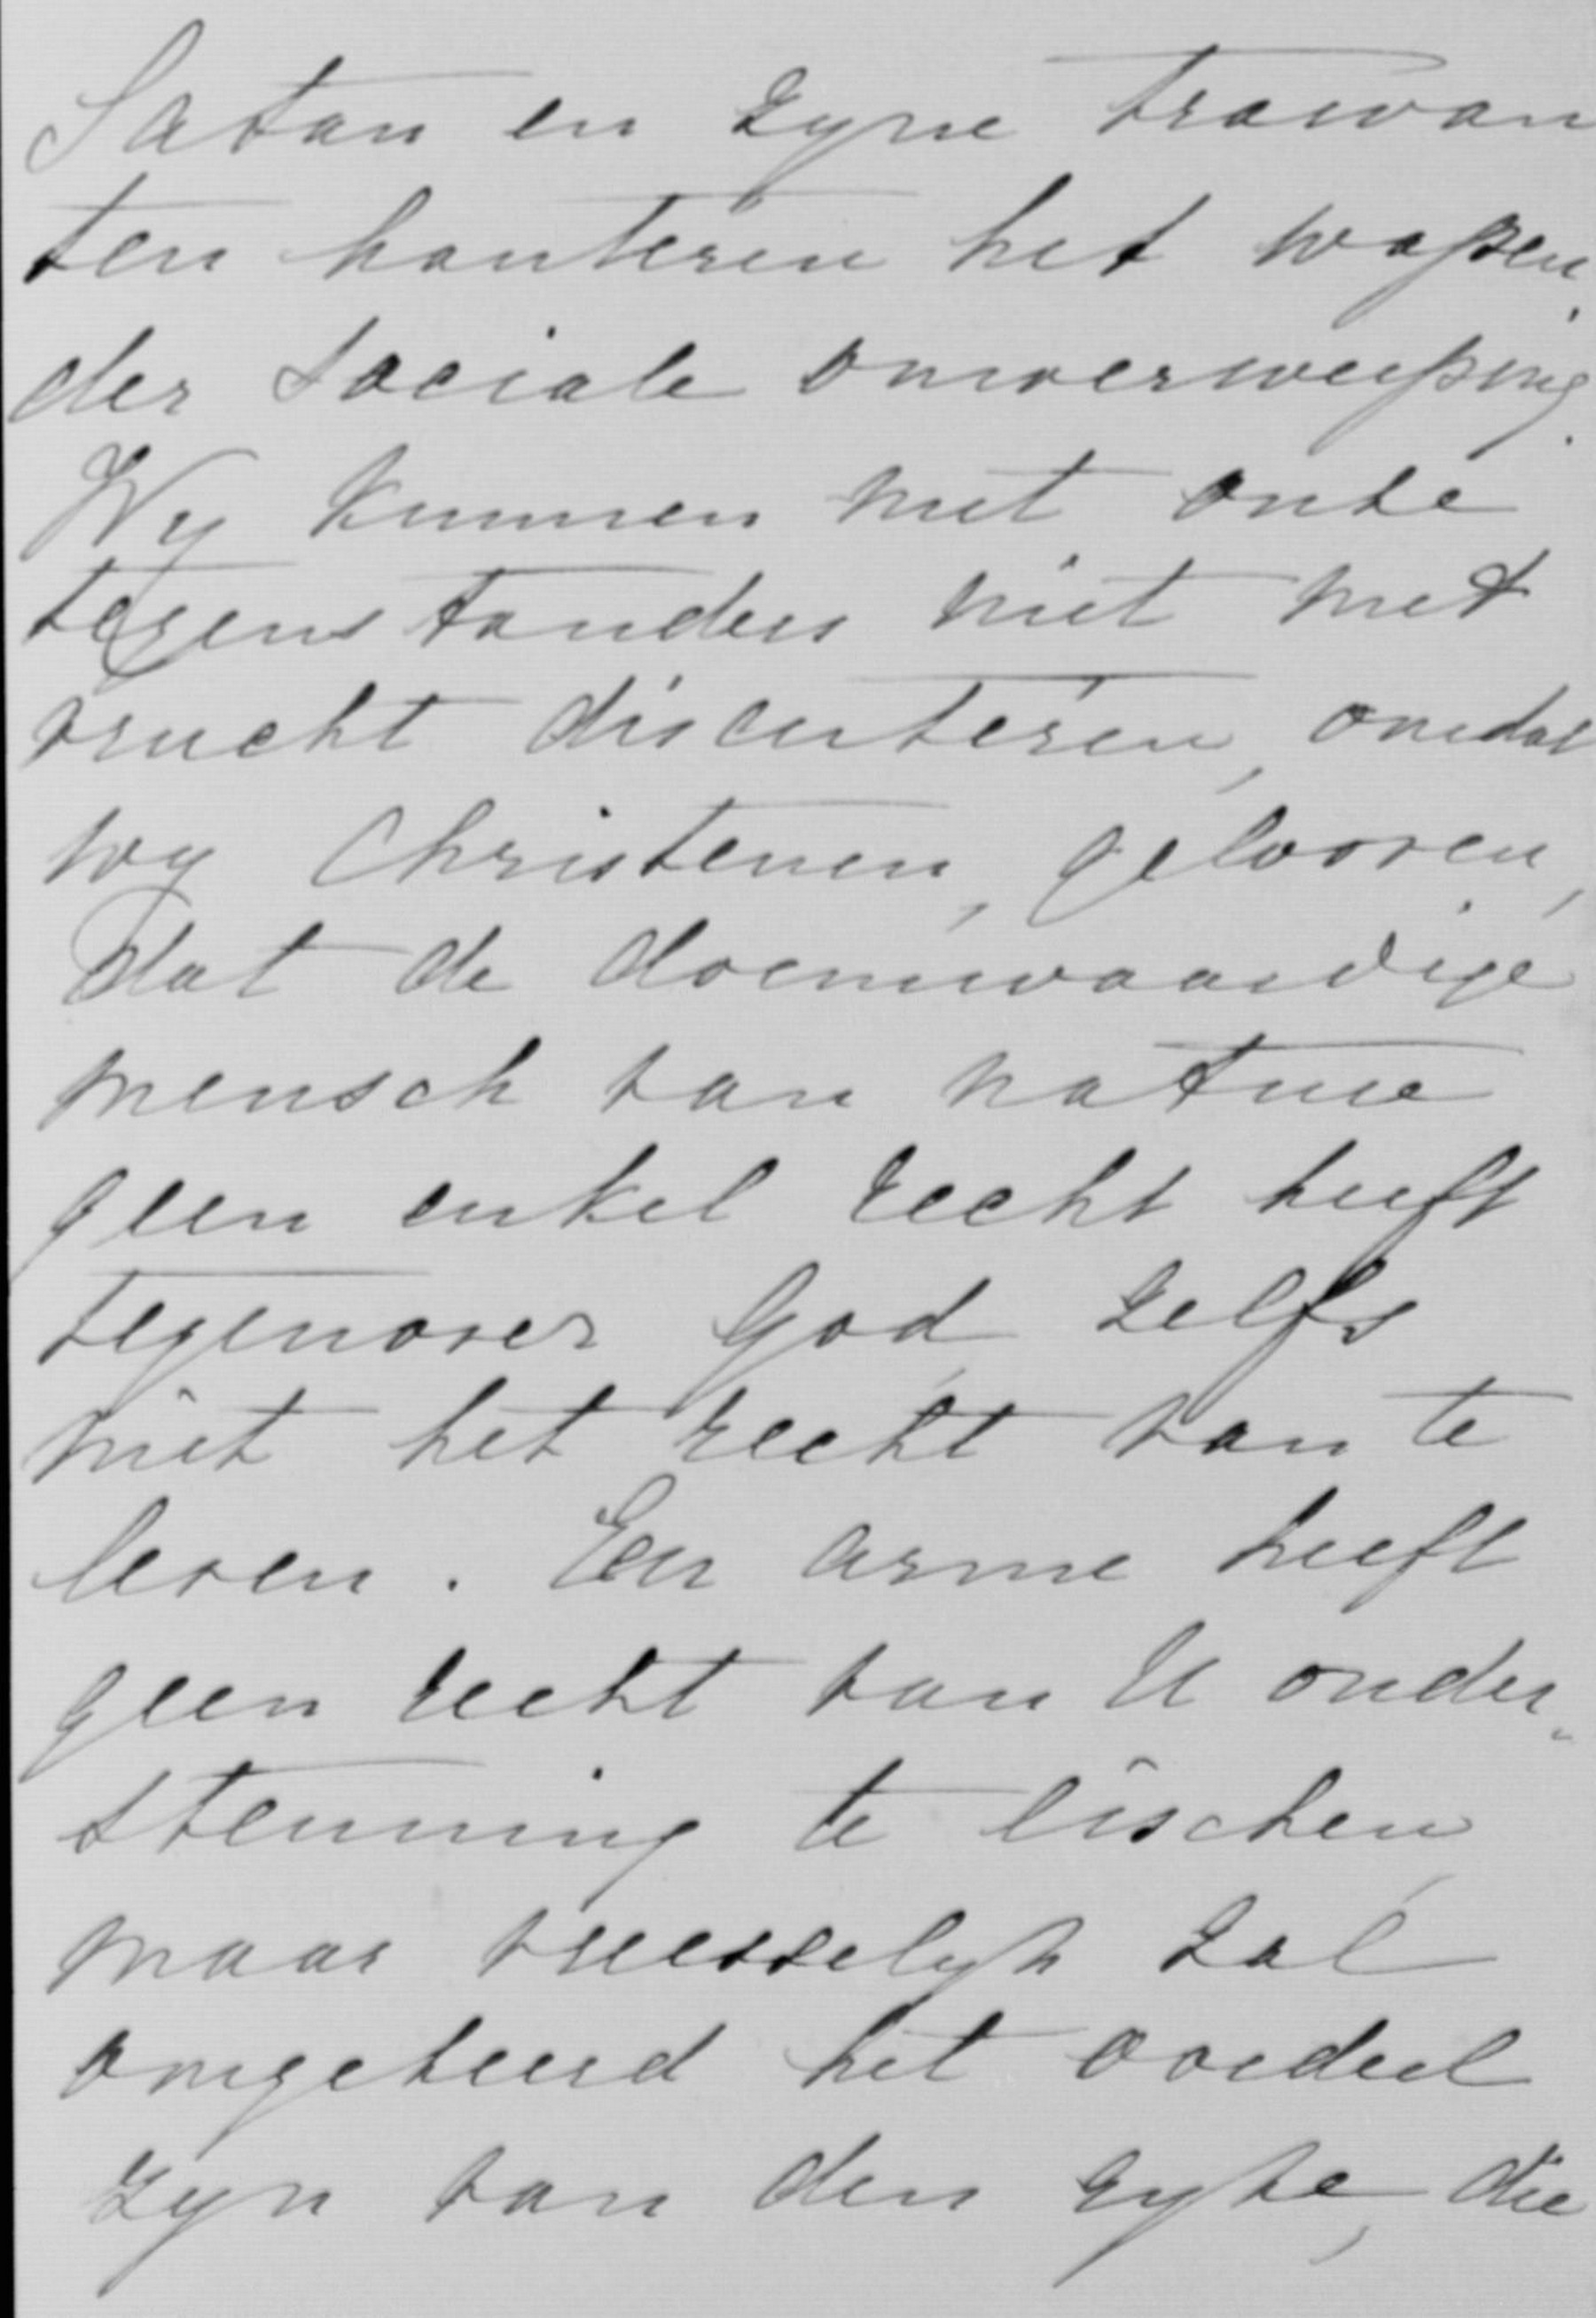 Satan en zyne trawan
ten hanteren het wapen
der sociale omverwerping.
Wy kunnen met onze
tegenstanders niet met
vrucht discuteren, omdat
wy Christenen, gelooven,
dat de doemwaardige
mensch van nature
geen enkel recht heeft
tegenover God, zelfs
niet het recht van te
leven. Een arme heeft
geen recht van U onder-
steuning te eischen,
maar vreesselyk zal
omgekeerd het oordeel
zyn van den ryke, die